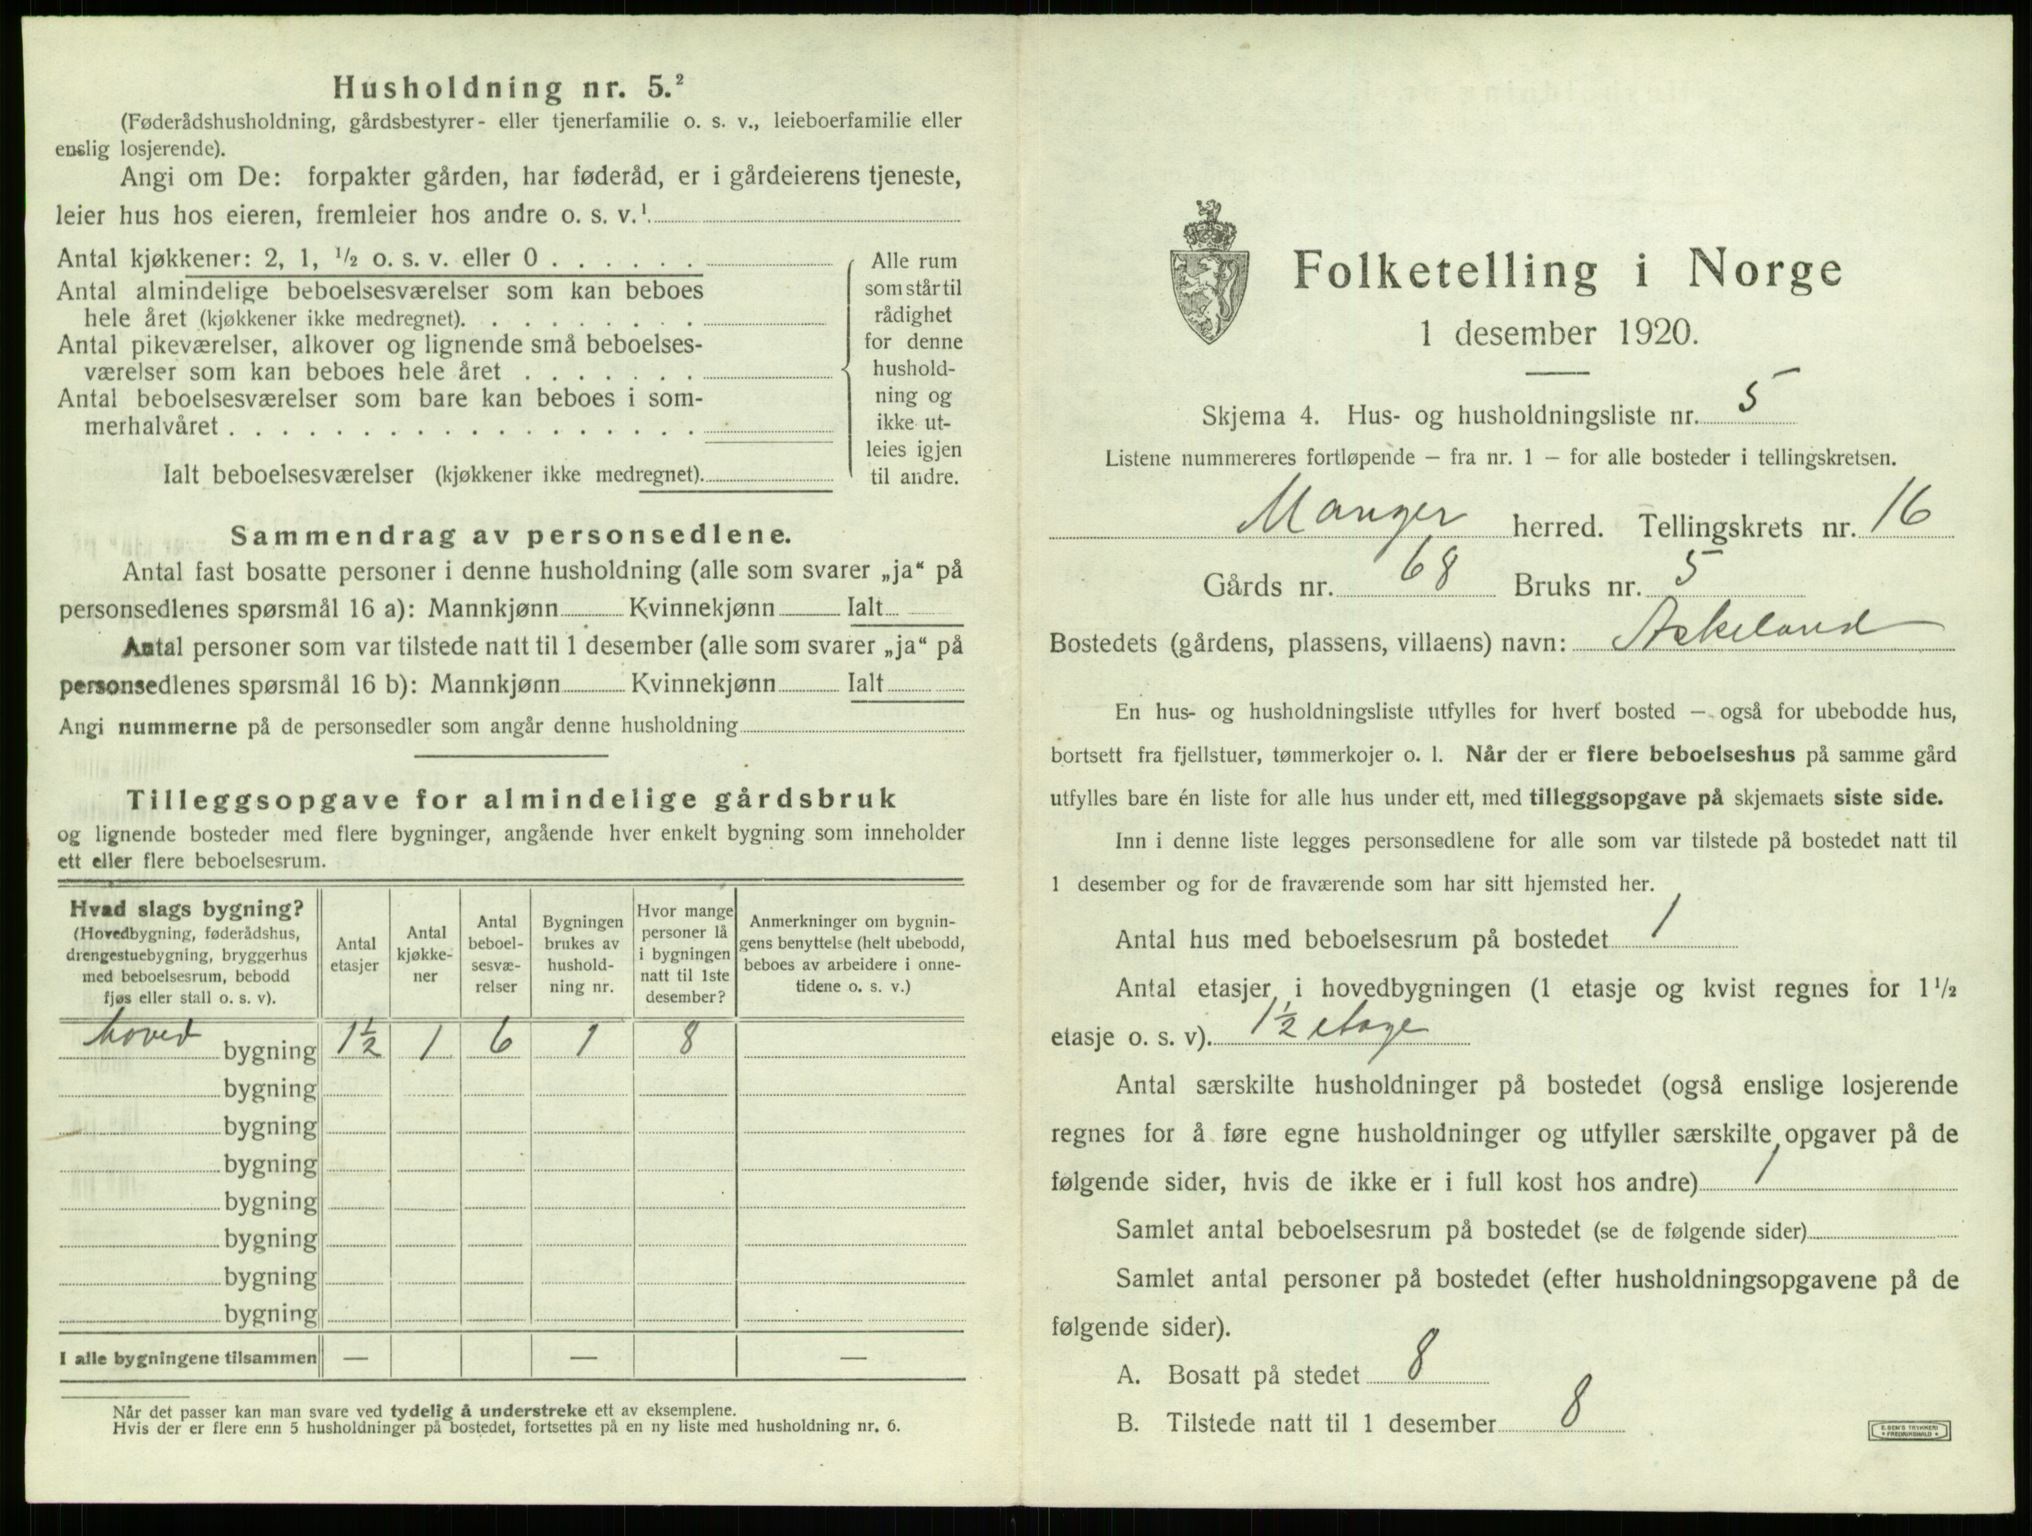 Husholdning nr. 5.²
(Føderådshusholdning, gårdsbestyrer- eller tjenerfamilie o. s. v., leieboerfamilie eller
enslig losjerende).
Angi om De: forpakter gården, har føderåd, er i gårdeierens tjeneste,
leier hus hos eieren, fremleier hos andre o. s. v.¹
Antal kjøkkener: 2, 1, ½ o. s. v. eller 0 . . . . . .
Antal almindelige beboelsesværelser som kan beboes
hele året (kjøkkener ikke medregnet). . . . . . . . .
Antal pikeværelser, alkover og lignende små beboelses-
værelser som kan beboes hele året . . . . . . .
Antal beboelsesværelser som bare kan beboes i som-
merhalvåret . . . . . . . . . . . . . . . . . .
Ialt beboelsesværelser (kjøkkener ikke medregnet).
Alle rum
som står til
rådighet
for denne
hushold-
ning og
ikke ut-
leies igjen
til andre.
Sammendrag av personsedlene.
Antal fast bosatte personer i denne husholdning (alle som svarer „ja“ på
personsedlenes spørsmål 16 a): Mannkjønn Kvinnekjønn Ialt
Antal personer som var tilstede natt til 1 desember (alle som svarer „ja“ på
personsedlenes spørsmål 16 b): Mannkjønn Kvinnekjønn Ialt
Angi nummerne på de personsedler som angår denne husholdning
Tilleggsopgave for almindelige gårdsbruk
og lignende bosteder med flere bygninger, angående hver enkelt bygning som inneholder
ett eller flere beboelsesrum.
Hvad slags bygning?
(Hovedbygning, føderådshus,
drengestuebygning, bryggerhus
med beboelsesrum, bebodd
fjøs eller stall o. s. v).
Antal
etasjer
Antal
kjøkke-
ner
Antal
beboel-
sesvæ-
relser
Bygningen
brukes av
hushold-
ning nr.
Hvor mange
personer lå
i bygningen
natt til 1ste
desember?
Anmerkninger om bygnin-
gens benyttelse (helt ubebodd,
beboes av arbeidere i onne-
tidene o. s. v.)
hoved bygning 1½ 1 6 1 8
bygning
bygning
bygning
bygning
bygning
bygning
bygning
I alle bygningene tilsammen — — —
Når det passer kan man svare ved tydelig å understreke ett av eksemplene.
Hvis der er flere enn 5 husholdninger på bostedet, fortsettes på en ny liste med husholdning nr. 6.
Folketelling i Norge
1 desember 1920.
Skjema 4. Hus- og husholdningsliste nr. 5
Listene nummereres fortløpende — fra nr. 1 — for alle bosteder i tellingskretsen.
Manger herred. Tellingskrets nr. 16
Gårds nr. 68 Bruks nr. 5
Bostedets (gårdens, plassens, villaens) navn: Askeland
En hus- og husholdningsliste utfylles for hvert bosted — også for ubebodde hus,
bortsett fra fjellstuer, tømmerkojer o. l. Når der er flere beboelseshus på samme gård
utfylles bare én liste for alle hus under ett, med tilleggsopgave på skjemaets siste side.
Inn i denne liste legges personsedlene for alle som var tilstede på bostedet natt til
1 desember og for de fraværende som har sitt hjemsted her.
Antal hus med beboelsesrum på bostedet 1
Antal etasjer i hovedbygningen (1 etasje og kvist regnes for 1½
etasje o. s. v). 1½ etage
Antal særskilte husholdninger på bostedet (også enslige losjerende
regnes for å føre egne husholdninger og utfyller særskilte opgaver på de
følgende sider, hvis de ikke er i full kost hos andre) 1
Samlet antal beboelsesrum på bostedet (se de følgende sider)
Samlet antal personer på bostedet (efter husholdningsopgavene på de
følgende sider).
A. Bosatt på stedet 8
B. Tilstede natt til 1 desember 8
E. SEM'S TRYKKERI
FREDRIKSHALD